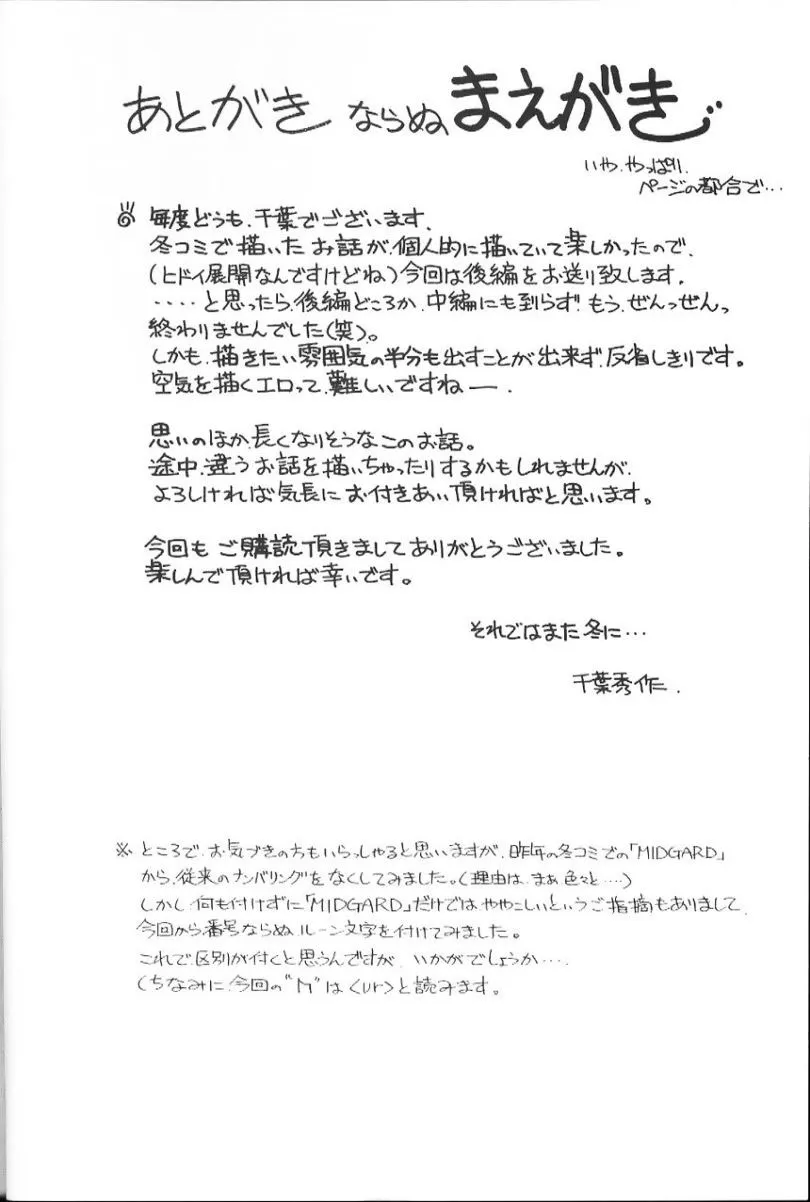 あとがきならぬ、まえがき
いや、やっぱり、
ページの都合で…
毎度どうも、千葉でございます。
冬コミで描いたお話が、個人的に描いていて楽しかったので、
(ヒドイ展開なんですけどね)今回は後編をお送り致します。
‥‥と思ったら、後編どころか、中編にも到らず!もう、ぜんっぜんっ
終わりませんでした(笑)。
しかも、描きたい雰囲気の半分も出すことが出来ず、反省しきりです。
空気を描くエロって、難しいですねー.
思いのほか、長くなりそうなこのお話。
途中、違うお話を描いちゃったりするかもしれませんが、
よろしければ気長にお付きあい頂ければと思います。
今回もご購読頂きましてありがとうございました。
楽しんで頂ければ幸いです。
それではまた冬に…
千葉秀作.
※ところで、お気づきの方もいらっしゃると思いますが、昨年の冬コミでの「MIDGARD」
から、従来のナンバリングをなくしてみました。(理由は、まぁ色々と‥‥)
しかし何も付けずに「MIDGARD」だけではややこしいというご指摘もありまして、
今回から番号ならぬ、ルーン文字を付けてみました。
これで、区別が付くと思うんですが、いかがでしょうか‥‥.
(ちなみに、今回の"ᚢ"は<ur>と読みます。